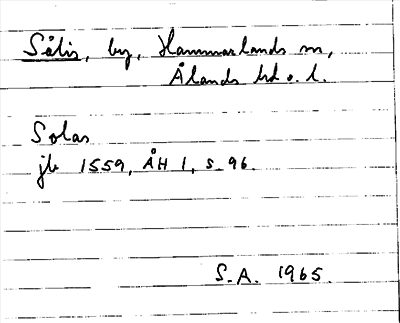 Sålis, by, Hammarlands sn,
Ålands hd o. l.
Solas
jb 1559, ÅH 1, s. 96.
S.A. 1965.